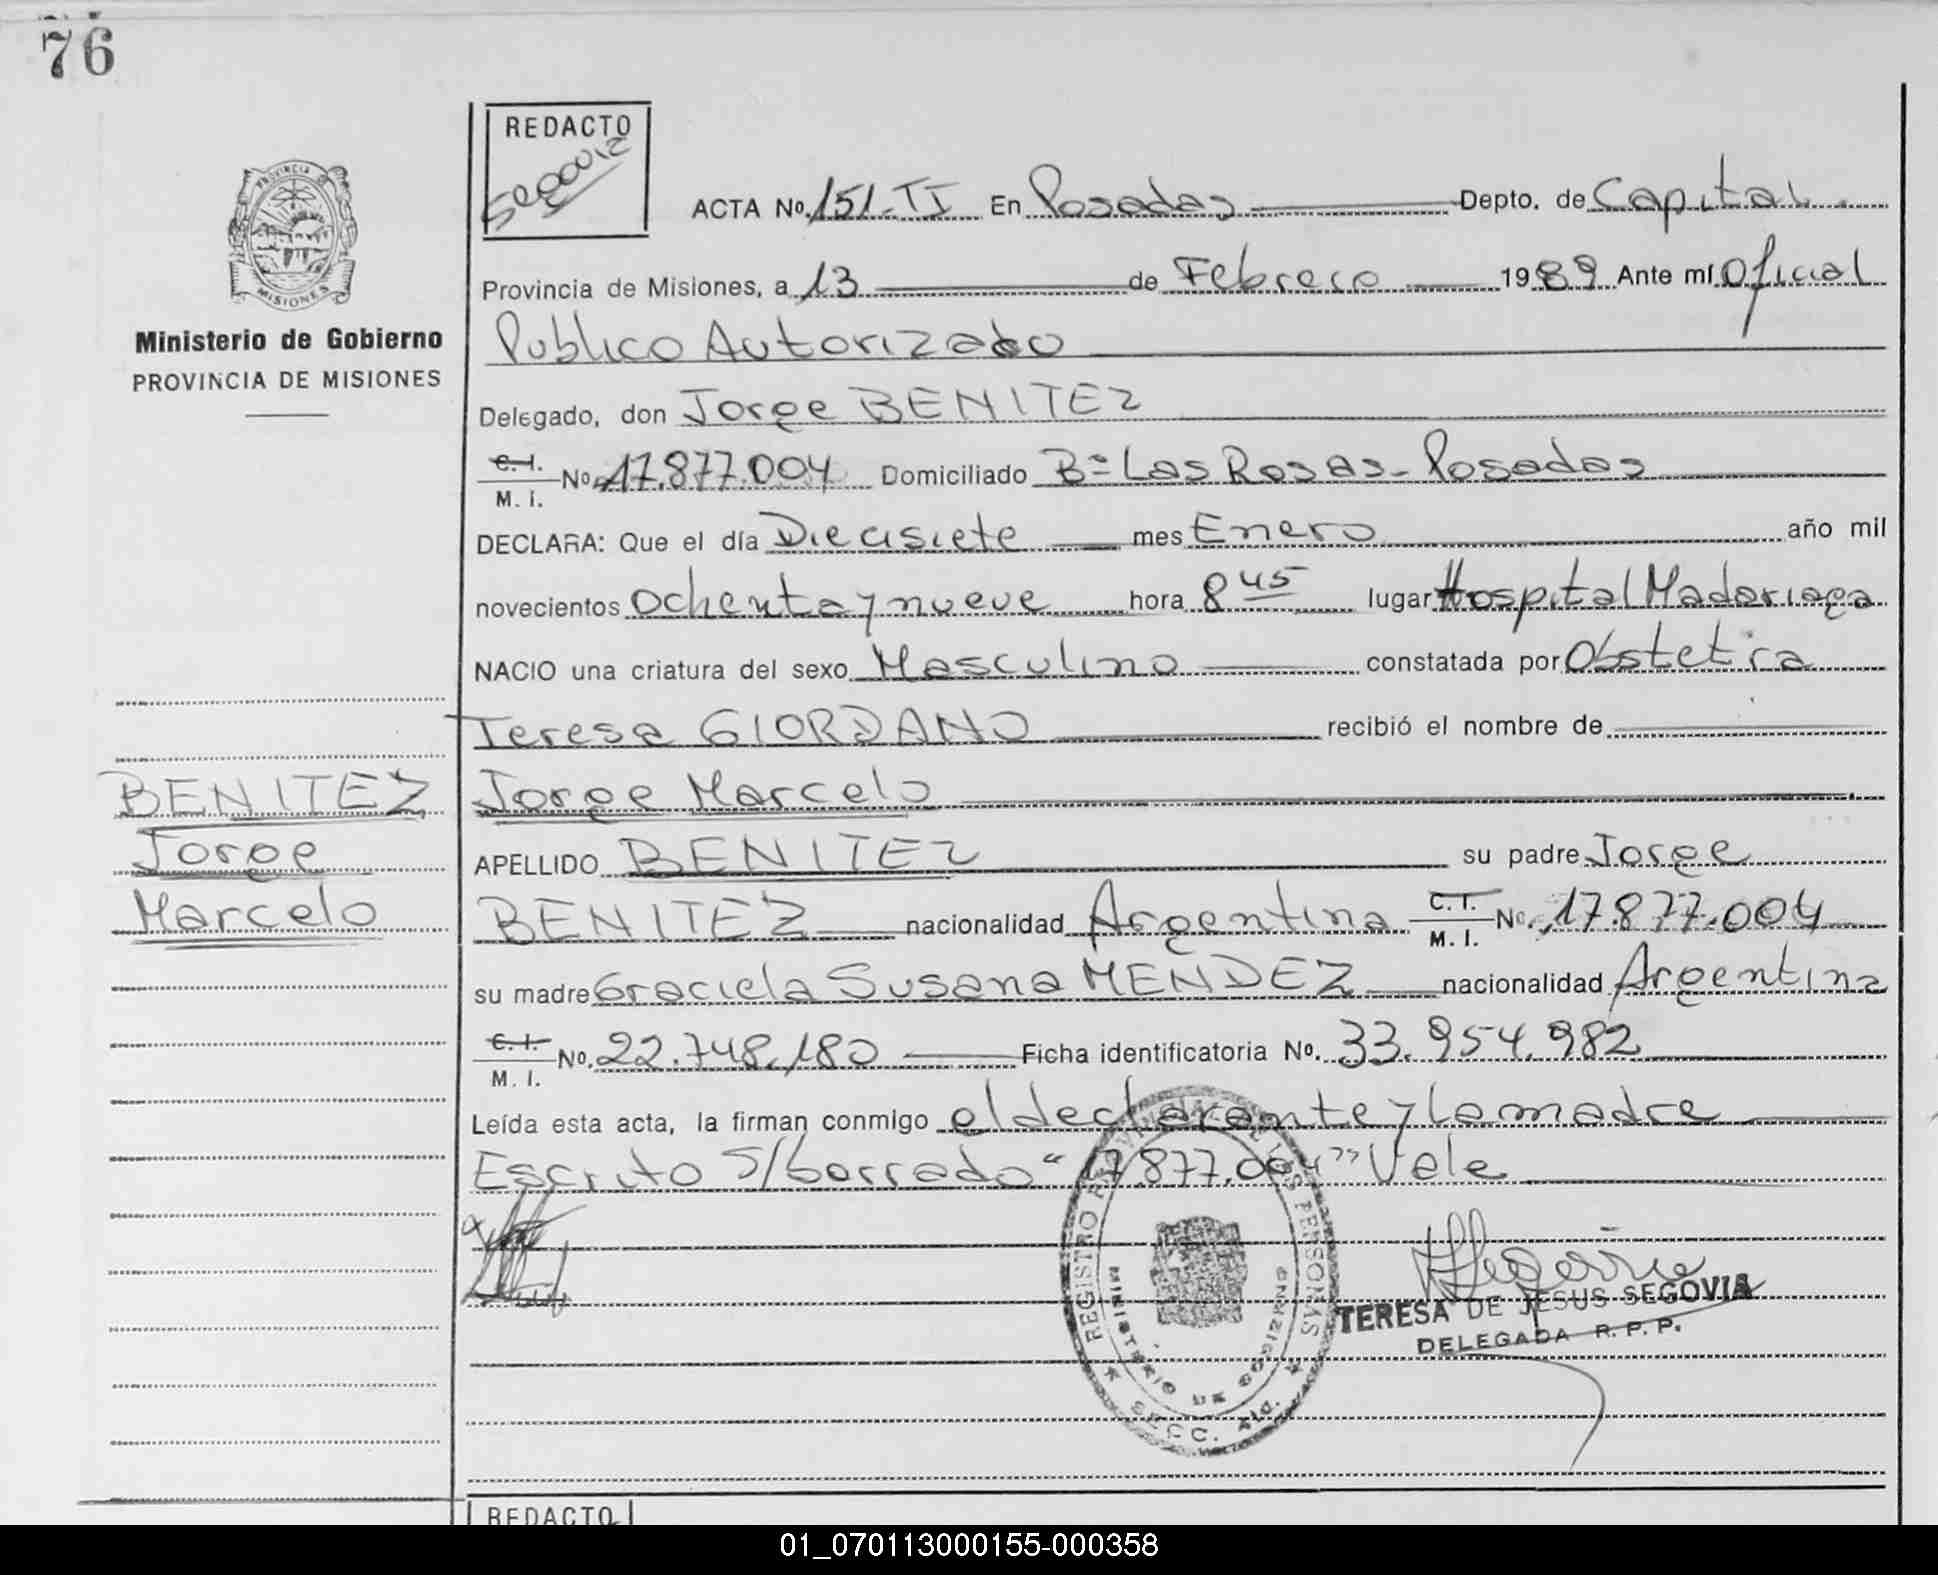 76
REDACTO
Segovia
PROVINCIA DE
MISIONES
Ministerio de Gobierno
PROVINCIA DE MISIONES
BENITEZ
Jorge
Marcelo
ACTA No. 151-TI En Posadas Depto. de Capital.
Provincia de Misiones, a 13 de Febrero 1989 Ante mí Oficial
Publico Autorizado
Delegado, don Jorge BENITEZ
C. I. M. I. No. 17.877.004 Domiciliado Bº Las Rosas - Posadas
DECLARA: Que el día Diecisiete mes Enero año mil
novecientos ochenta y nueve hora 8 45 lugar Hospital Madariaga
NACIO una criatura del sexo Masculino constatada por Obstetica
Teresa GIORDANO recibió el nombre de
Jorge Marcelo
APELLIDO BENITEZ su padre Jorge
BENITEZ nacionalidad Argentina C. I. M. I. No. 17.877.004
su madre Graciela Susana MENDEZ nacionalidad Argentina
C. I. M. I. No. 22.748.180 Ficha identificatoria No. 33.954.982
Leída esta acta, la firman conmigo el declarante y la madre
Escrito S/borrado "17.877.004" Vale
REGISTRO PROVINCIAL DE LAS PERSONAS
MINISTERIO DE GOBIERNO
SECC.
TERESA DE JESUS SEGOVIA
DELEGADA R. P. P.
REDACTO
01_070113000155-000358